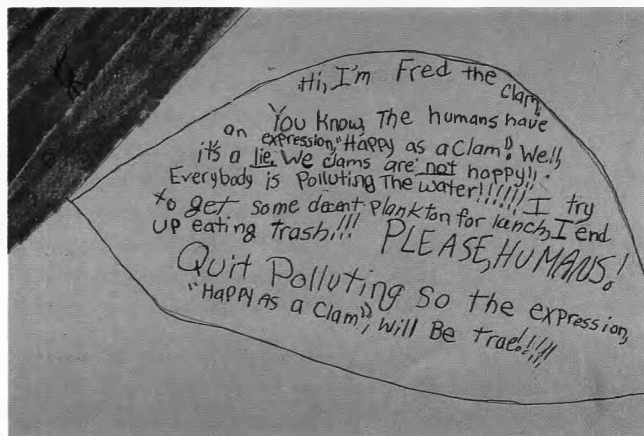 Hi, I'm Fred the Clam.
You Know, The humans have
an expression, "Happy as a Clam". Well,
it's a lie. We clams are not happy!!
Everybody is Polluting The water!!!!!! I try
to get some decent Plankton for lanch, I end
up eating trash!!! PLEASE, HUMANS!
Quit Polluting so the expression,
"Happy As a Clam", will Be trae!!!!!